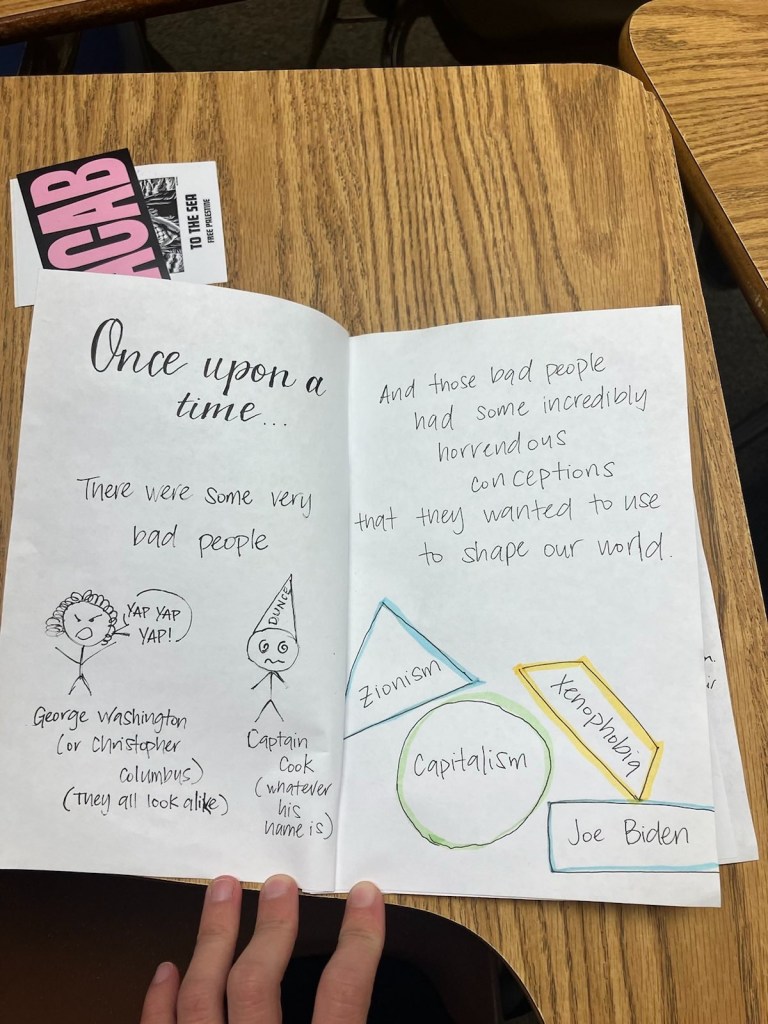 ACAB
TO THE SEA
FREE PALESTINE
Once upon a
time...
There were some very
bad people
YAP YAP
YAP!
DUNCE
George Washington
(or Christopher
Columbus)
(They all look alike)
Captain
Cook
(whatever
his
name is)
And those bad people
had some incredibly
horrendous
conceptions
that they wanted to use
to shape our world.
Zionism
Xenophobia
Capitalism
Joe Biden